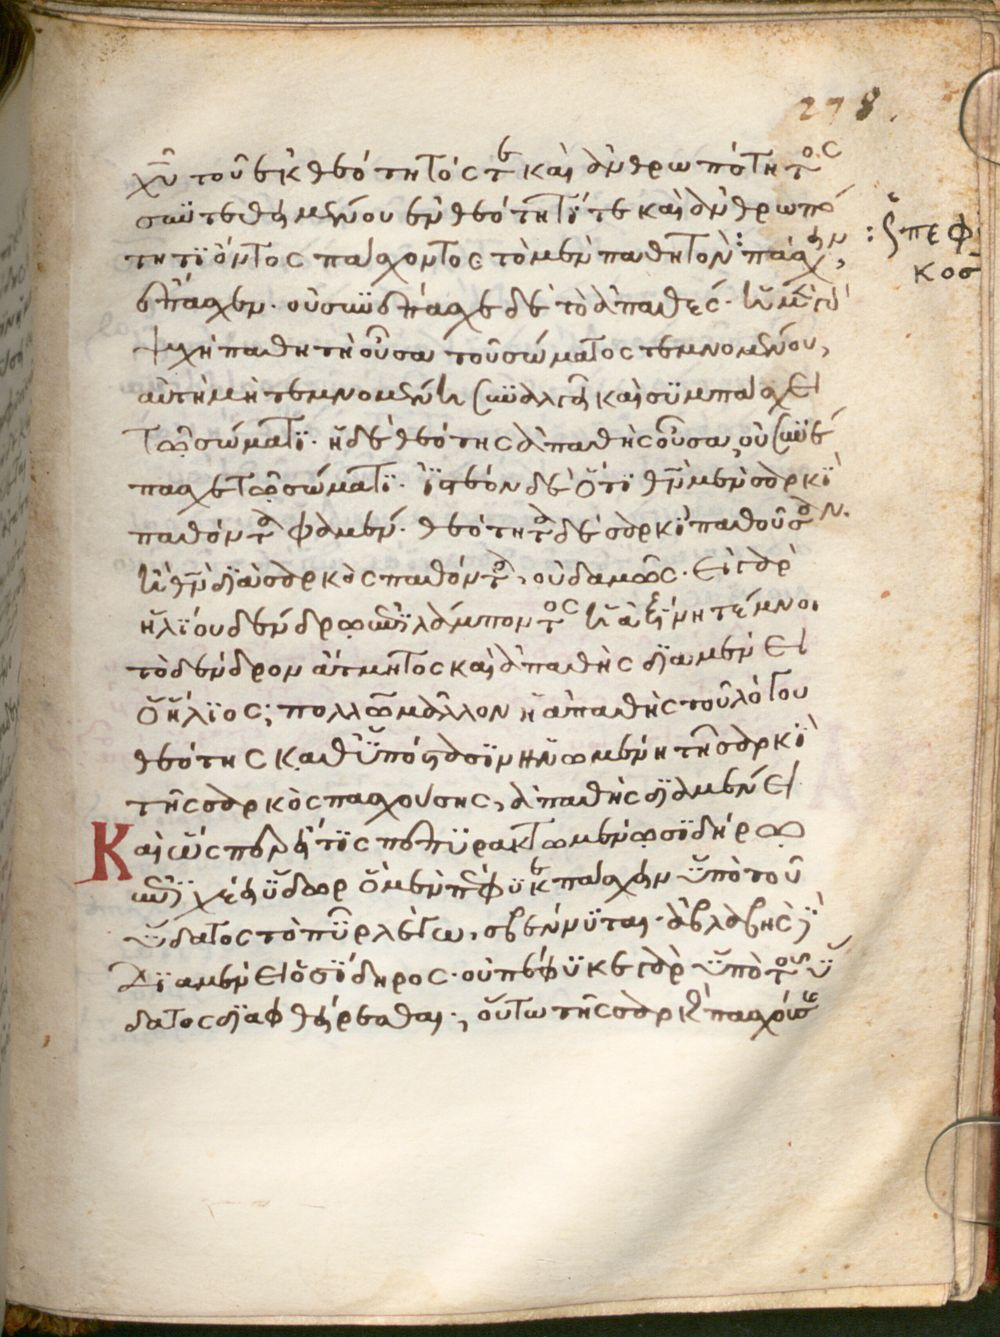 278.
χῦ τοῦ ἐκ θεότητός τε καὶ ἀνθρωπότητος
συντεθειμένου ἐν θεότητί τε καὶ ἀνθρωπό
τητι ὄντος πάσχοντος τὸ μὲν παθητὸν πάσχειν
πεφ
κοσ
ἔπασχεν. οὐ συνέπασχε δὲ τὸ ἀπαθές. ἡ μὲν
ψυχὴ παθητὴ οὖσα τοῦ σώματος τεμνομένου,
αὐτὴ μὴ τεμνομένη συναλγεῖ καὶ συμπάσχει
τῷ σώματι. ἡ δὲ θεότης ἀπαθὴς οὖσα, οὐ συνέ
πασχε τῷ σώματι. ἰστέον δὲ ὅτι θν μὲν σαρκὶ
παθόντα φαμὲν. θεότητα δὲ σαρκὶ παθοῦσαν.
ἢ θν διὰ σαρκὸς παθόντα, οὐδαμῶς. εἰ γὰρ
ἡλίου δένδρῳ ἐπιλάμποντος ἡ ἀξίνη τέμνοι
τὸ δένδρον ἄτμητος καὶ ἀπαθὴς διαμένει
ὁ ἥλιος, πολλῷ μᾶλλον ἡ ἀπαθὴς τοῦ λόγου
θεότης καθ' ὑπόστασιν ἡνωμένη τῇ σαρκὶ
τῆς σαρκὸς πασχούσης, ἀπαθὴς διαμένει
Καὶ ὥσπερ εἴ τις πεπυρακτωμένῳ σιδήρῳ
ἐπιχέει ὕδωρ ὃ μὲν πέφυκε πάσχειν ὑπὸ τοῦ
ὕδατος τὸ πῦρ λέγω, σβέννυται. ἀβλαβὴς
διαμένει ὁ σίδηρος. οὐ πέφυκε γὰρ ὑπὸ τοῦ ὕ
δατος διαφθείρεσθαι, οὕτω τῆς σαρκὸς πασχούσης